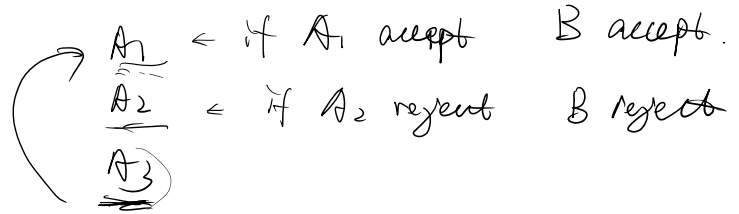 A1 ← if A1 accept B accept.
A2 ← if A2 reject B reject
A3